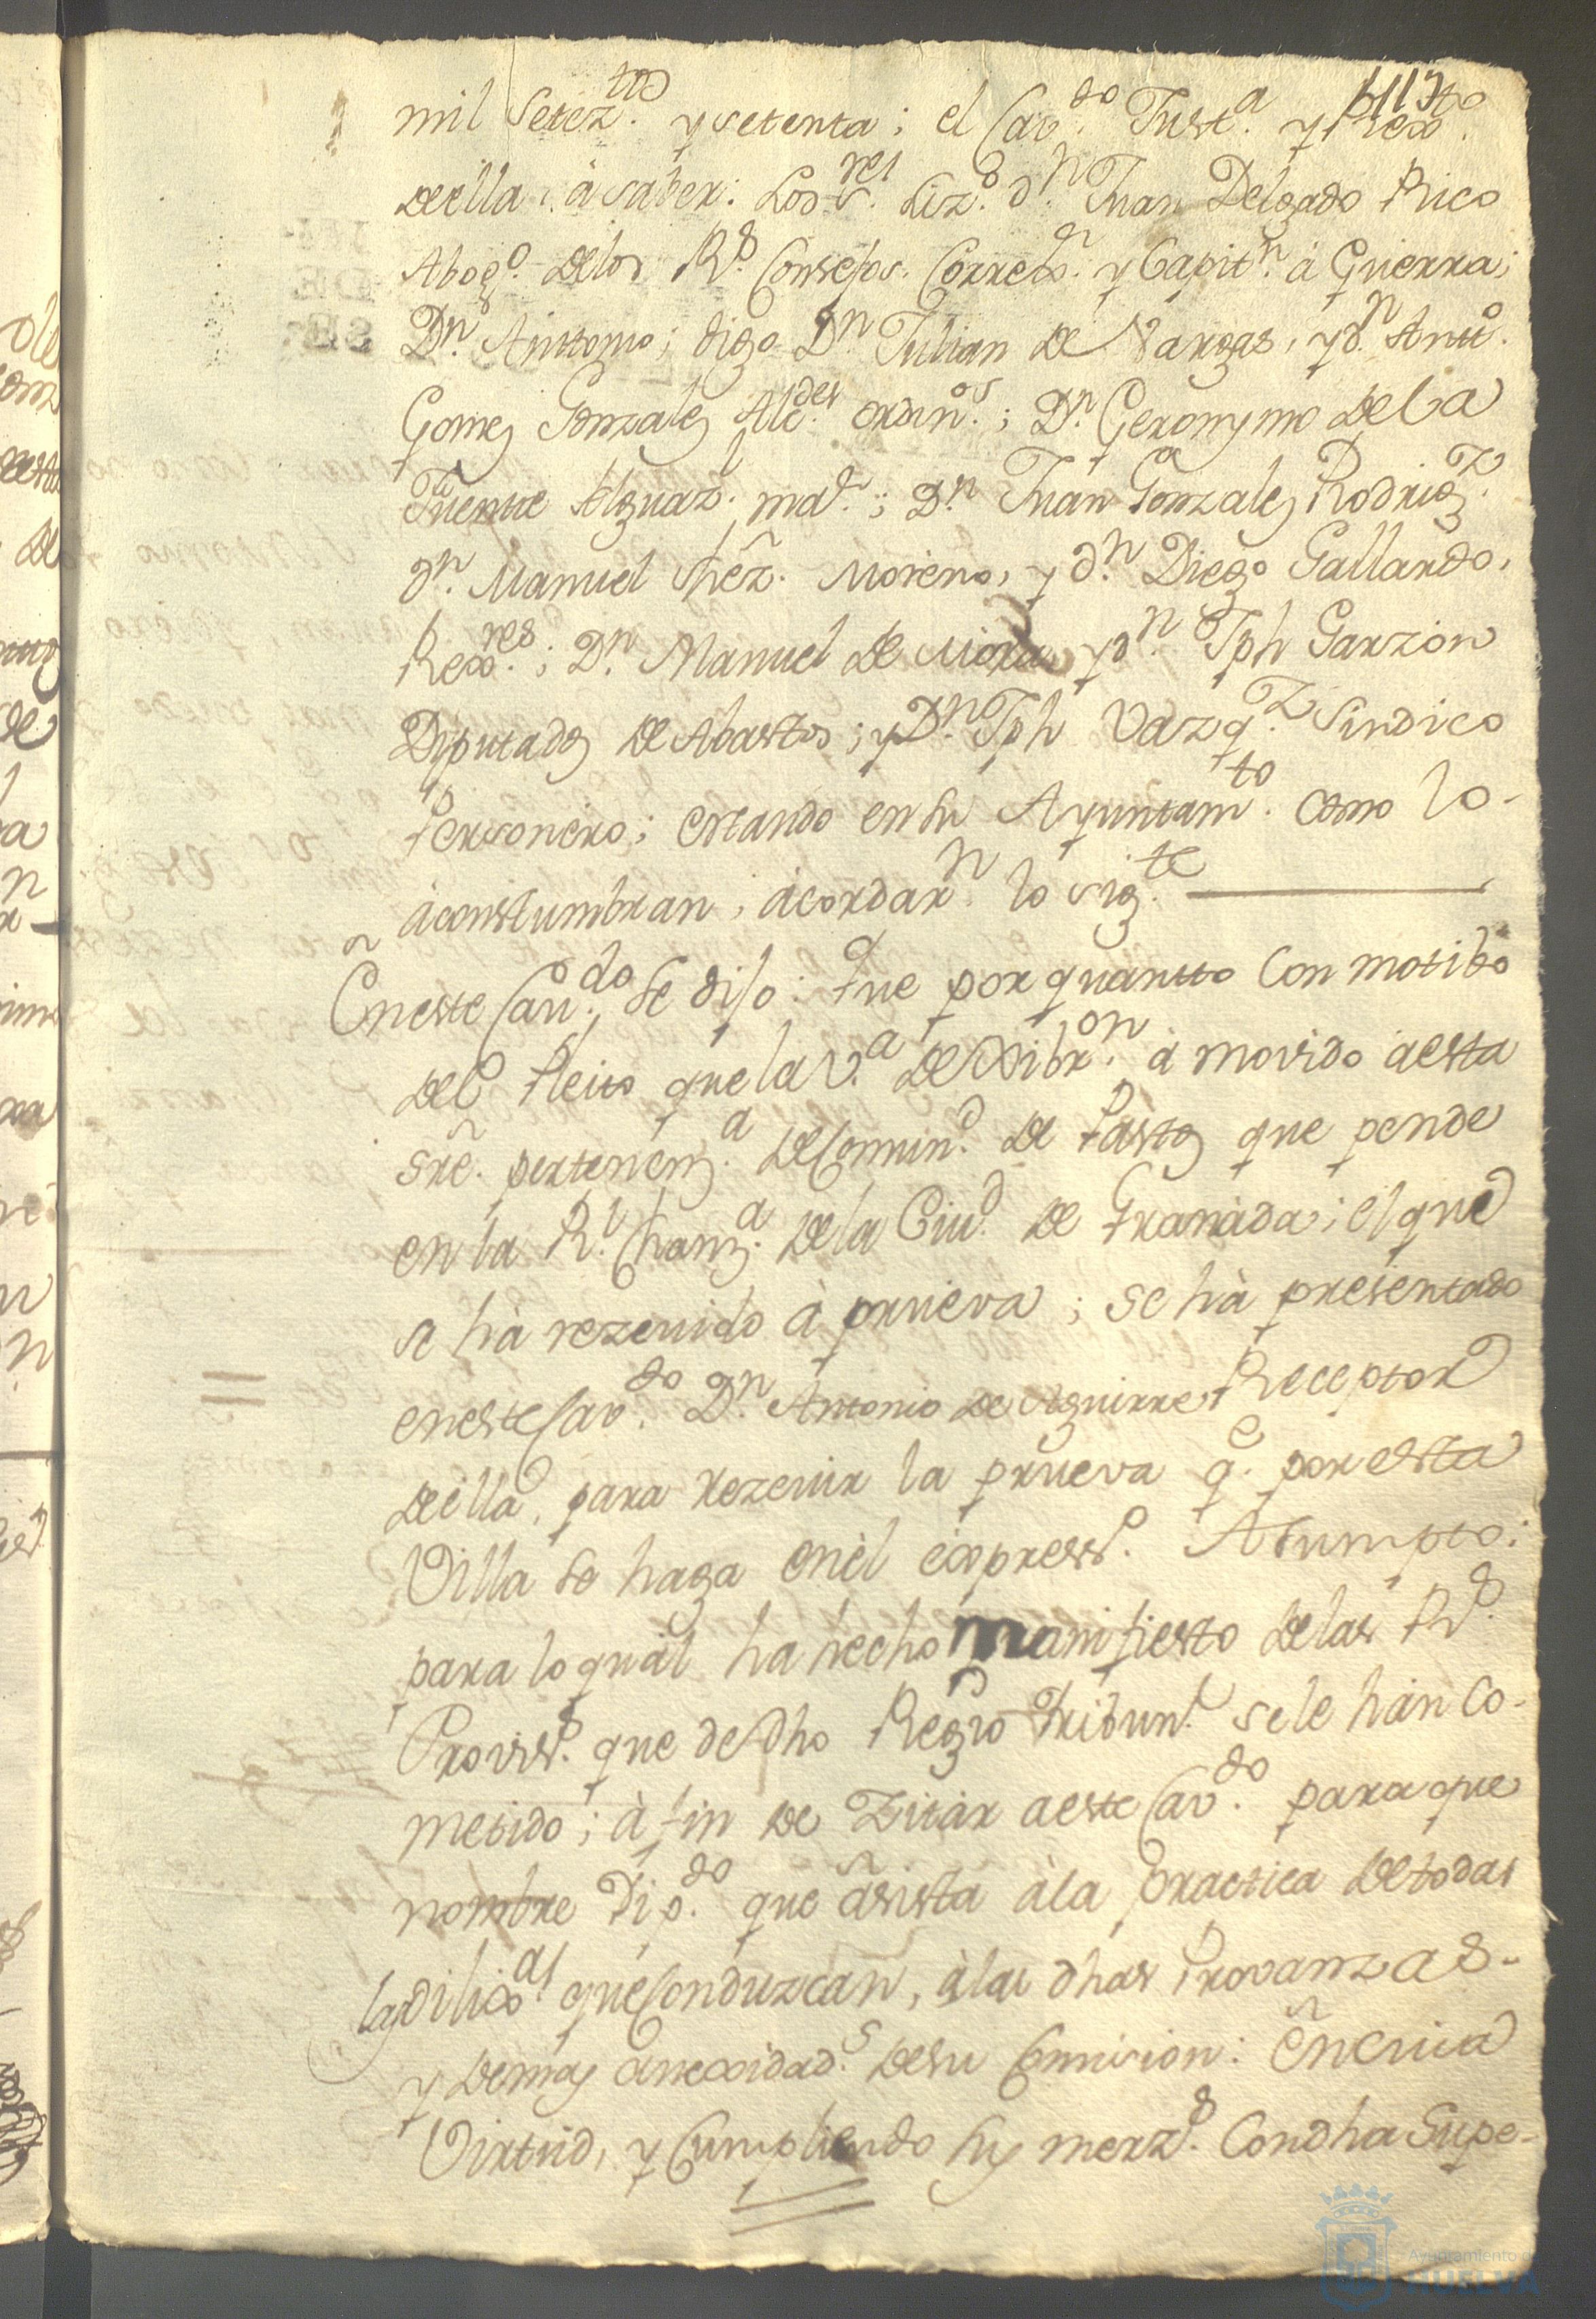 mil Setez.tos y setenta; el Cav.do Just.a y Rexto.
de ella, â saver: Los S.res Liz.do d.n Juan Delgado Rico
Abog.o de los R.s Consejos. Correx.r y Capit.n â Guerra;
D.n Anttonio; digo D.n Julian de Vargas, y d.n Antt.o
Gomez Gonzalez Alc.des ordin.os; D.n Geronymo de la
Fuente Alguaz.l ma.r; D.n Juan Gonzalez Rodrig.z
d.n Manuel Shẽz. Moreno, y d.n Diego Gallardo,
Rex.res; D.n Manuel de Mora y d.n Jph Garzion
Diputados de Abastos; y D.n Jph Vazq.z Sindico
Personero; estando en su Ayuntam.to como lo-
âconstumbran, âcordar.n lo sig.te
En este Cau.do se dijo: Que por quantto Con motibo
del Pleito que la V.a de Xibr.on â movido a esta
sre. pertenenz.a de Comun.d de Pastos que pende
en la R.l Chanz.a de la Ciu.d de Granada; el que
se hà rezeuido â prueva; se hà presentado
en este Cav.do D.n Antonio de Aguirre Receptor
de ella, para rezeuir la prueva q.e por esta
Villa se haga en èl express.o Asumpto:
para lo qual ha hecho manifiesto de las R.s
Proviss.s que de dho Regio Tribun.l se le han Co-
metido; â fin de Zitar a este Cav.do para que
nombre Dip.do que asista âla practica de todas
las dilix.as que Conduzcan, âlas dhas Provanzas-
y demas anexidad.s de su Comision: En cuia
Virtud, y Cumpliendo sus merz.s Con dha Supe-
Ayuntamiento de
HUELVA